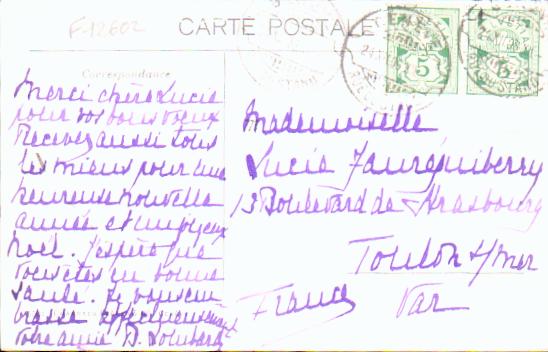 F-12602
CARTE POSTALE
Correspondance
Merci chère Lucia
pour vos bons voeux
Recevez aussi tous
les miens pour une
heureuse nouvelle
année et un joyeux
Noël. J'espère que
vous êtes en bonne
santé. Je vous em
brasse affectueusement
votre amie D. Lombard
Mademoiselle
Lucia Jauréguiberry
13 Boulevard de Strasbourg
Toulon s/mer
Var
France
5
5